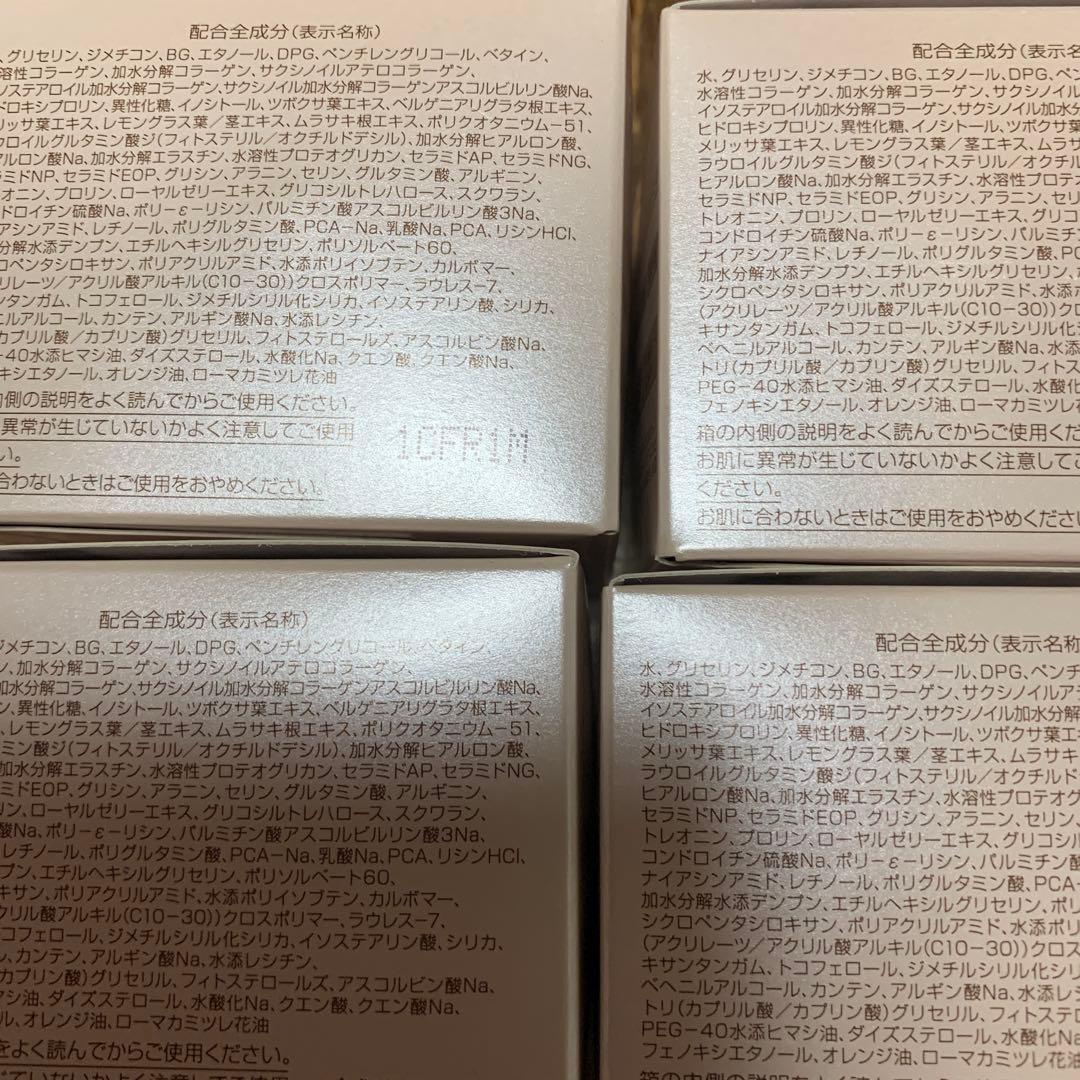 配合全成分(表示名称)
、グリセリン、ジメチコン、BG、エタノール、DPG、ペンチレングリコール、ベタイン、
溶性コラーゲン、加水分解コラーゲン、サクシノイルアテロコラーゲン、
ソステアロイル加水分解コラーゲン、サクシノイル加水分解コラーゲンアスコルビルリン酸Na、
ドロキシプロリン、異性化糖、イノシトール、ツボクサ葉エキス、ベルゲニアリグラタ根エキス、
リッサ葉エキス、レモングラス葉/茎エキス、ムラサキ根エキス、ポリクオタニウム-51、
ウロイルグルタミン酸ジ(フィトステリル/オクチルドデシル)、加水分解ヒアルロン酸、
アルロン酸Na、加水分解エラスチン、水溶性プロテオグリカン、セラミドAP、セラミドNG、
ミドNP、セラミドEOP、グリシン、アラニン、セリン、グルタミン酸、アルギニン、
オニン、プロリン、ローヤルゼリーエキス、グリコシルトレハロース、スクワラン、
ドロイチン硫酸Na、ポリ-ε-リシン、パルミチン酸アスコルビルリン酸3Na、
アシンアミド、レチノール、ポリグルタミン酸、PCA-Na、乳酸Na、PCA、リシンHCl、
分解水添デンプン、エチルヘキシルグリセリン、ポリソルベート60、
ロペンタシロキサン、ポリアクリルアミド、水添ポリイソブテン、カルボマー、
リレーツ/アクリル酸アルキル(C10-30))クロスポリマー、ラウレス-7、
ンタンガム、トコフェロール、ジメチルシリル化シリカ、イソステアリン酸、シリカ、
ニルアルコール、カンテン、アルギン酸Na、水添レシチン、
カプリル酸/カプリン酸)グリセリル、フィトステロールズ、アスコルビン酸Na、
-40水添ヒマシ油、ダイズステロール、水酸化Na、クエン酸、クエン酸Na、
キシエタノール、オレンジ油、ローマカミツレ花油
内側の説明をよく読んでからご使用ください。
異常が生じていないかよく注意してご使用
い。
合わないときはご使用をおやめください。
1CFR1M
配合全成分(表示名
水、グリセリン、ジメチコン、BG、エタノール、DPG、ペン
水溶性コラーゲン、加水分解コラーゲン、サクシノイル
イソステアロイル加水分解コラーゲン、サクシノイル加水分
ヒドロキシプロリン、異性化糖、イノシトール、ツボクサ葉
メリッサ葉エキス、レモングラス葉/茎エキス、ムラサキ根
ラウロイルグルタミン酸ジ(フィトステリル/オクチルド
ヒアルロン酸Na、加水分解エラスチン、水溶性プロテオ
セラミドNP、セラミドEOP、グリシン、アラニン、セリン
トレオニン、プロリン、ローヤルゼリーエキス、グリコ
コンドロイチン硫酸Na、ポリ-ε-リシン、パルミチ
ナイアシンアミド、レチノール、ポリグルタミン酸、PC
加水分解水添デンプン、エチルヘキシルグリセリン、
シクロペンタシロキサン、ポリアクリルアミド、水添ポ
(アクリレーツ/アクリル酸アルキル(C10-30))クロ
キサンタンガム、トコフェロール、ジメチルシリル化シ
ベヘニルアルコール、カンテン、アルギン酸Na、水添
トリ(カプリル酸/カプリン酸)グリセリル、フィトス
PEG-40水添ヒマシ油、ダイズステロール、水酸化
フェノキシエタノール、オレンジ油、ローマカミツレ花
箱の内側の説明をよく読んでからご使用くだ
お肌に異常が生じていないかよく注意してご
ください。
お肌に合わないときはご使用をおやめくださ
配合全成分(表示名称)
ジメチコン、BG、エタノール、DPG、ペンチレングリコール、ベタイン、
ン、加水分解コラーゲン、サクシノイルアテロコラーゲン、
加水分解コラーゲン、サクシノイル加水分解コラーゲンアスコルビルリン酸Na、
ン、異性化糖、イノシトール、ツボクサ葉エキス、ベルゲニアリグラタ根エキス、
、レモングラス葉/茎エキス、ムラサキ根エキス、ポリクオタニウム-51、
ミン酸ジ(フィトステリル/オクチルドデシル)、加水分解ヒアルロン酸、
加水分解エラスチン、水溶性プロテオグリカン、セラミドAP、セラミドNG、
ミドEOP、グリシン、アラニン、セリン、グルタミン酸、アルギニン、
リン、ローヤルゼリーエキス、グリコシルトレハロース、スクワラン、
酸Na、ポリ-ε-リシン、パルミチン酸アスコルビルリン酸3Na、
レチノール、ポリグルタミン酸、PCA-Na、乳酸Na、PCA、リシンHCl、
プン、エチルヘキシルグリセリン、ポリソルベート60、
キサン、ポリアクリルアミド、水添ポリイソブテン、カルボマー、
クリル酸アルキル(C10-30))クロスポリマー、ラウレス-7、
コフェロール、ジメチルシリル化シリカ、イソステアリン酸、シリカ、
ル、カンテン、アルギン酸Na、水添レシチン、
カプリン酸)グリセリル、フィトステロールズ、アスコルビン酸Na、
マシ油、ダイズステロール、水酸化Na、クエン酸、クエン酸Na、
ル、オレンジ油、ローマカミツレ花油
をよく読んでからご使用ください。
じていないかよく注意してご使用
配合全成分(表示名称
水、グリセリン、ジメチコン、BG、エタノール、DPG、ペンチ
水溶性コラーゲン、加水分解コラーゲン、サクシノイルア
イソステアロイル加水分解コラーゲン、サクシノイル加水分解
ヒドロキシプロリン、異性化糖、イノシトール、ツボクサ葉エ
メリッサ葉エキス、レモングラス葉/茎エキス、ムラサキ
ラウロイルグルタミン酸ジ(フィトステリル/オクチルド
ヒアルロン酸Na、加水分解エラスチン、水溶性プロテオグ
セラミドNP、セラミドEOP、グリシン、アラニン、セリン、
トレオニン、プロリン、ローヤルゼリーエキス、グリコシル
コンドロイチン硫酸Na、ポリ-ε-リシン、パルミチン酸
ナイアシンアミド、レチノール、ポリグルタミン酸、PCA-
加水分解水添デンプン、エチルヘキシルグリセリン、ポ
シクロペンタシロキサン、ポリアクリルアミド、水添ポリ
(アクリレーツ/アクリル酸アルキル(C10-30))クロス
キサンタンガム、トコフェロール、ジメチルシリル化シリ
ベヘニルアルコール、カンテン、アルギン酸Na、水添レシ
トリ(カプリル酸/カプリン酸)グリセリル、フィトステロ
PEG-40水添ヒマシ油、ダイズステロール、水酸化Na
フェノキシエタノール、オレンジ油、ローマカミツレ花油
箱の内側の説明をよく読んでからご使用くだ